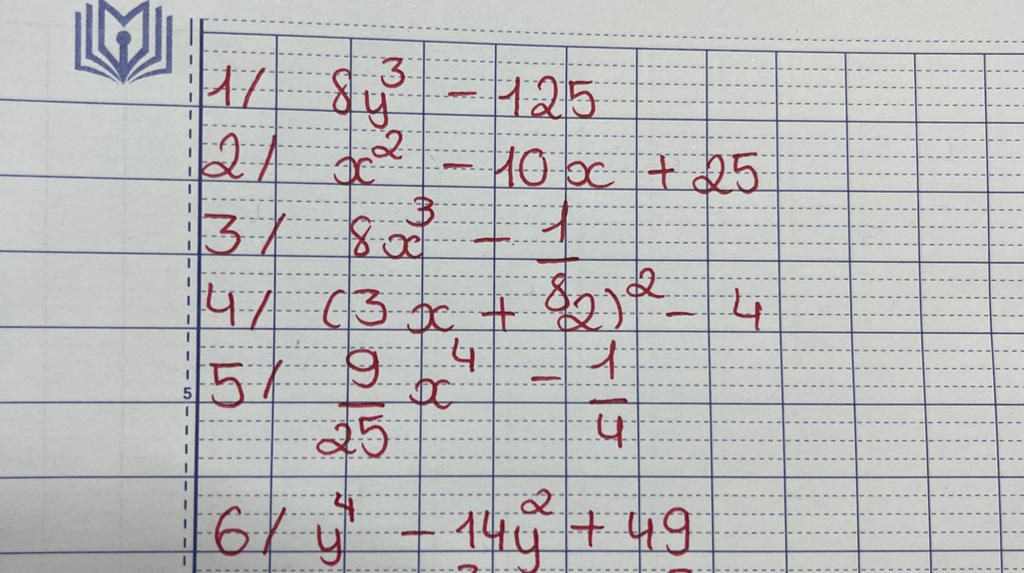 1/ 8y³ - 125
2/ x² - 10x + 25
3/ 8x³ - 1/8
4/ (3x + 2)² - 4
5/ 9/25 x⁴ - 1/4
5
6/ y⁴ - 14y² + 49